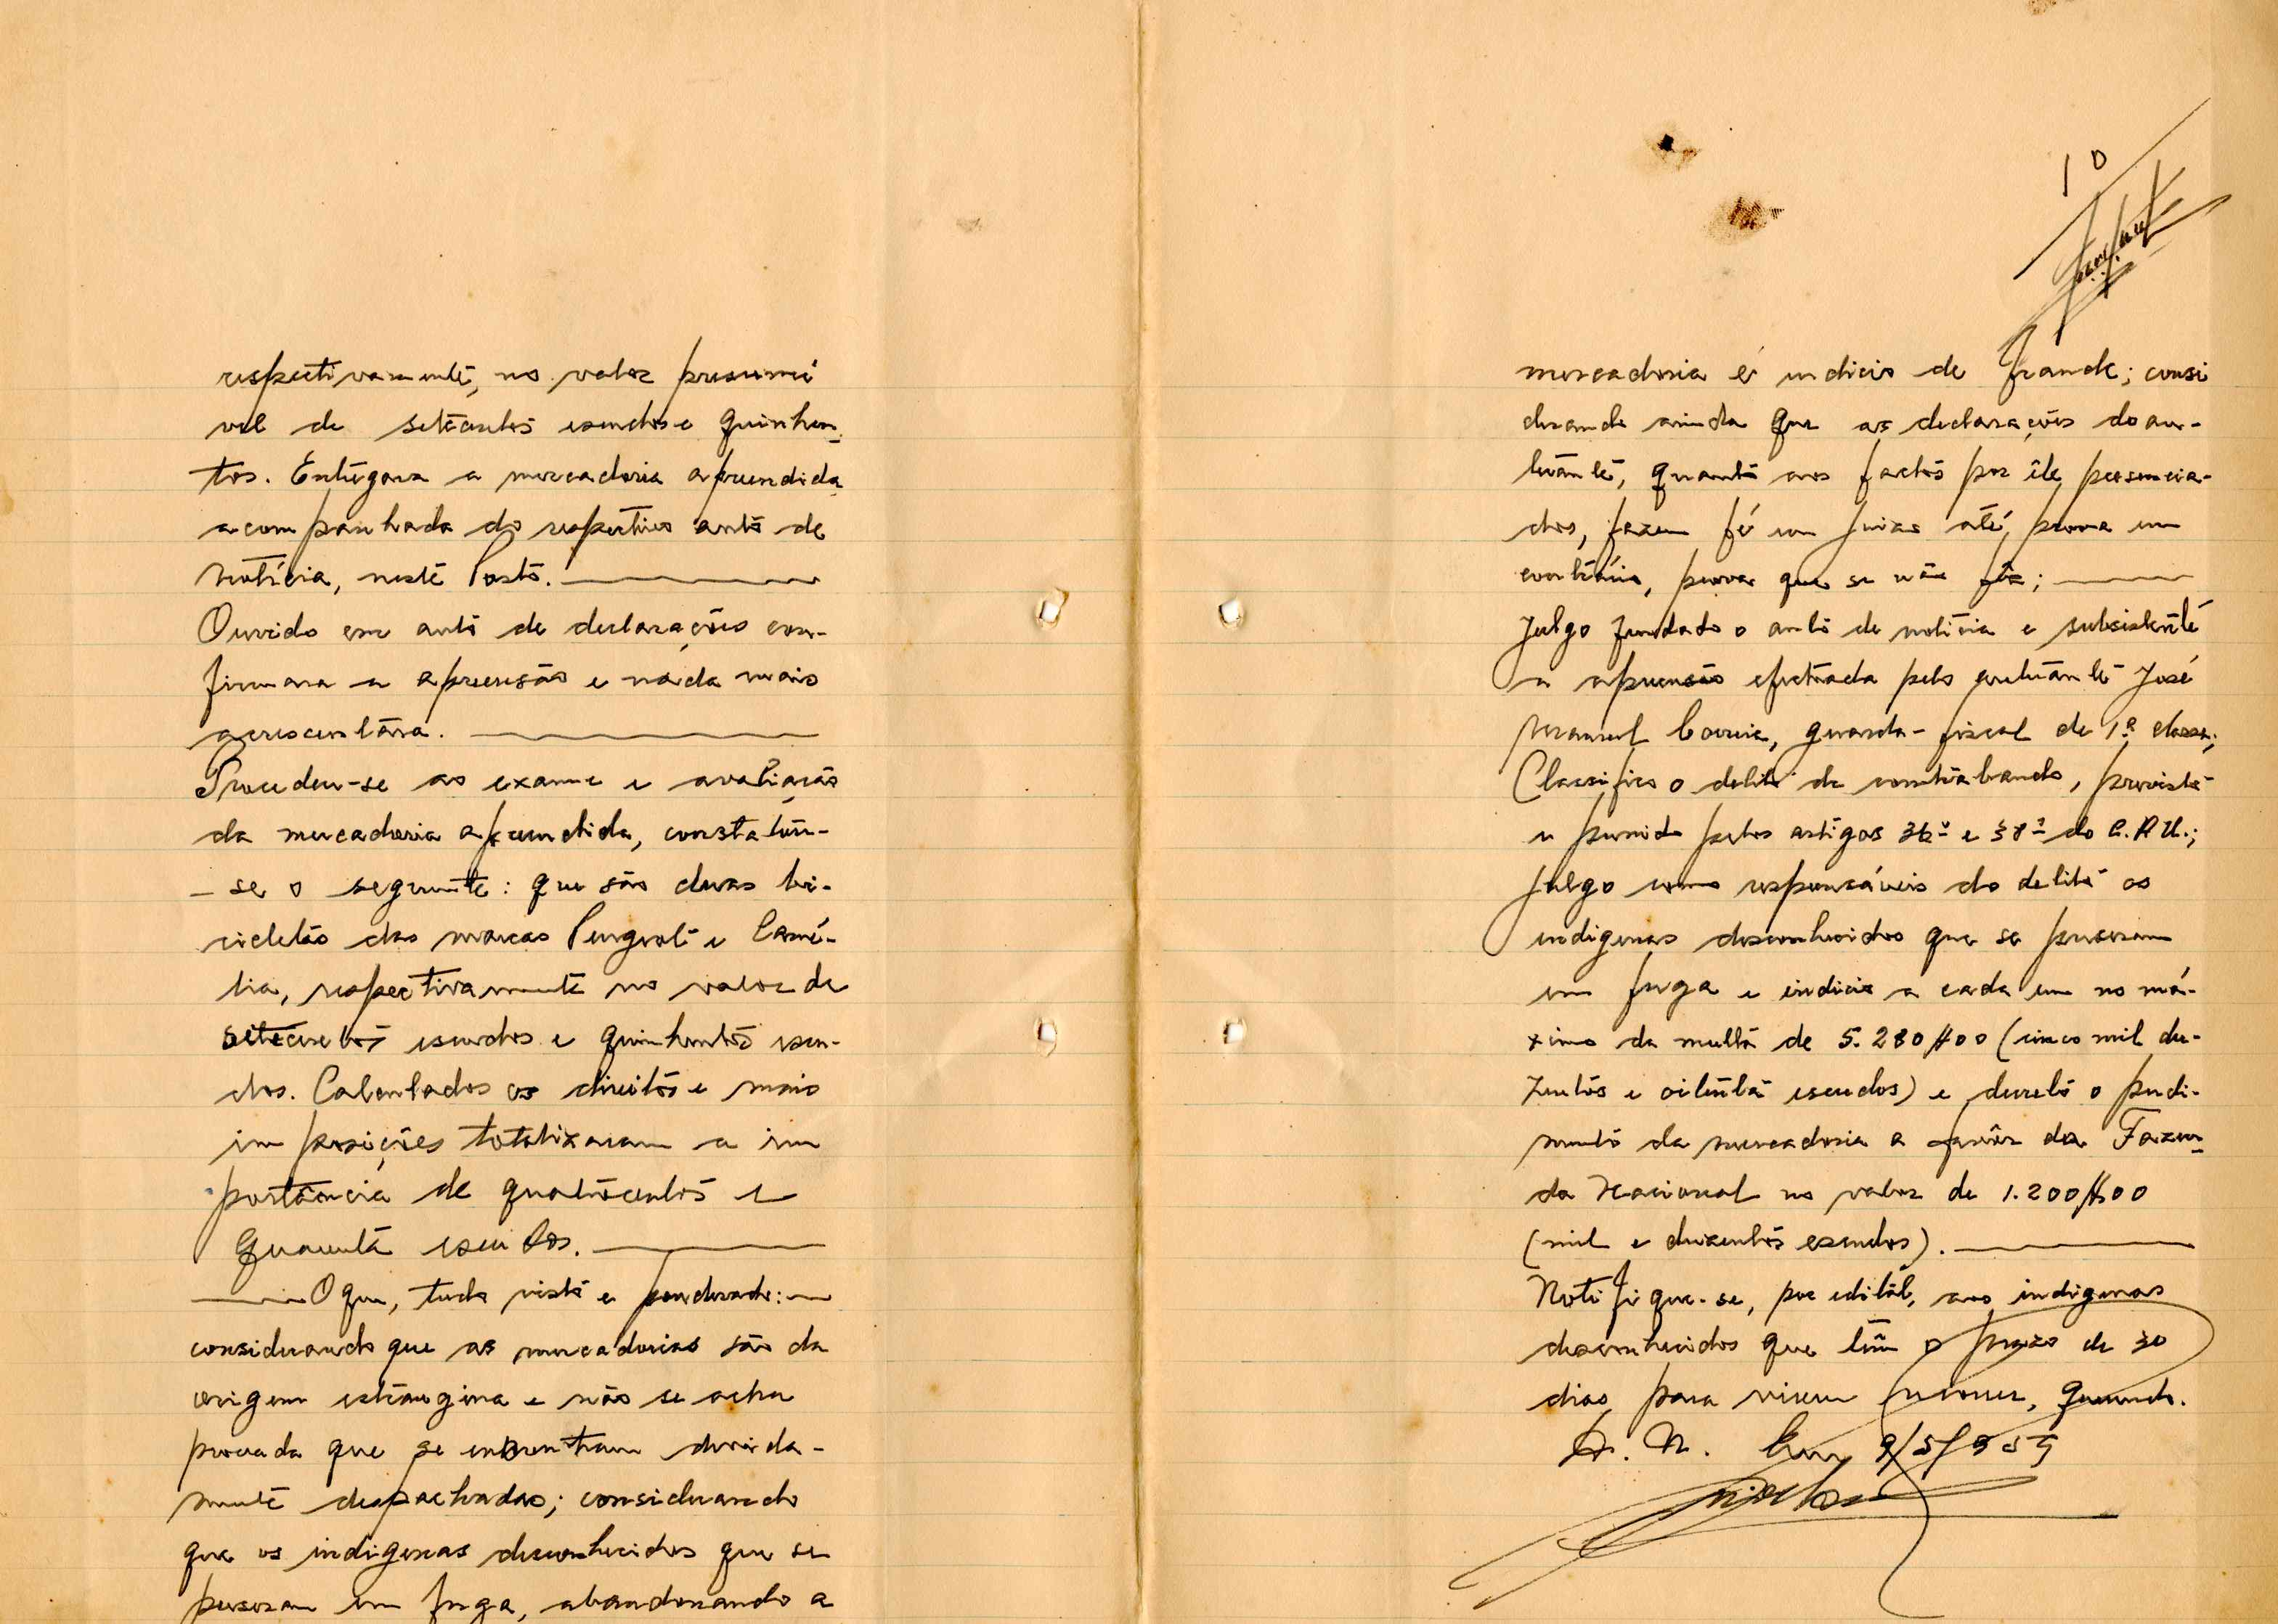 respectivamente, no valor presumí
vel de setecentos escudos e quinhen-
tos. Entregara a mercadoria apreendida
acompanhada do respectivo auto de
notícia, neste Posto.
Ouvido em auto de declarações con-
firmara a apreensão e nada mais
acrescentára.
Procedeu-se ao exame e avaliação
da mercadoria apreendida, constatou-
- se o seguinte: que são duas bi-
cicletas das marcas Peugeot e Camé-
lia, respectivamente no valor de
setecentos escudos e quinhentos escu-
dos. Calculados os direitos e mais
imposições totalizaram a im
portância de quatrocentos e
quarenta escudos.
O que, tudo visto e ponderado:
considerando que as mercadorias são da
origem estrangeira e não se acha
provada que se encontram devida-
mente despachadas; considerando
que os indigenas desconhecidos que se
puseram em fuga, abandonando a
10
mercadoria é indicio de fraude; consi
derando ainda que as declarações do au-
tuante, quanto aos factos por êle presencia-
dos, fazem fé em juizo até prova em
contrário, prova que se não fêz;
Julgo fundado o auto de notícia e subsistente
a apreensão efectuada pelo autuante José
Manuel Correia, guarda-fiscal de 1ª classe;
Classifico o delito de contrabando, previsto
e punido pelos artigos 36º e 38º do C.A.U.;
Julgo como responsáveis do delito os
indigenas desconhecidos que se puseram
em fuga e indicio a cada um no má-
ximo da multa de 5.280$00 (cinco mil du-
zentos e oitenta escudos) e decreto o perdi-
mento da mercadoria a favôr da Fazen-
da Nacional no valor de 1.200$00
(mil e duzentos escudos).
Notifique-se, por edital, aos indigenas
desconhecidos que têm o prazo de 30
dias para virem recorrer, querendo.
D. N. Em 9/5/955